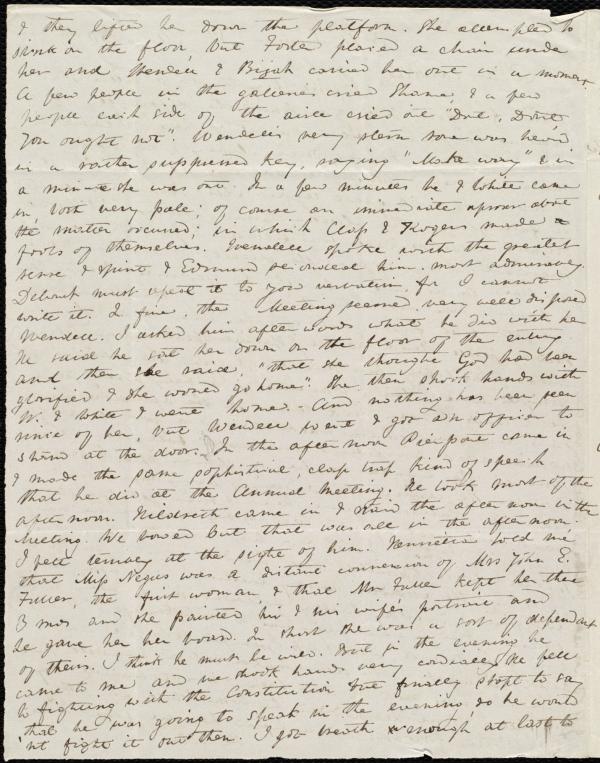 & they lifted her down the platform. She attempted to
sink on the floor, but Foster placed a chair under
her and Wendell & Bijah carried her out in a moment
A few people in the galleries cried Shame, & a few
people each side of the aisle cried out "Dont, Dont
You ought not". Wendell's very stern tone was heard
in a rather suppressed key, saying "Make way" & in
a minute she was out. In a few minutes he & White came
in, both very pale; of course an immediate uproar about
the matter occurred; in which Clap & Rogers made
fools of themselves. Wendell spoke with the greatest
sense & spirit, & Edmund seconded him most admirably.
Deborah must repeat it to you verbatim, for I cannot
write it. In fine, the Meeting seemed very well disposed
Wendell. I asked him afterwords what he did with her
He said he set her down on the floor of the entry
and then she said, "that she thought God had been
glorified & she would go home". She then shook hands with
W. & White & went home. - And nothing has been seen
since of her, but Wendell went & got an officer to
stand at the door. In the afternoon Pierpont came in
& made the same sophistical, clap trap kind of speech
that he did at the Annual Meeting. He took most of the
afternoon. Hildreth came in & staid the afternoon in the
Meeting. We bowed but that was all in the afternoon.
I felt tenderly at the sight of him. Henrietta told me
that Miss Negus was a distant connexion of Mrs John E.
Fuller, the first woman & that Mr Fuller kept her three
3 mos and she painted his & his wife's portrait and
he gave her her board. In short she was a sort of dependant
of theirs. I think he must be wild. But in the evening he
came to me and we shook hands very cordially. He fell
to fighting with the Constitution but finally stopt to say
that he was going to speak in the evening, so he would
'nt fight it out then. I got breath enough at last to